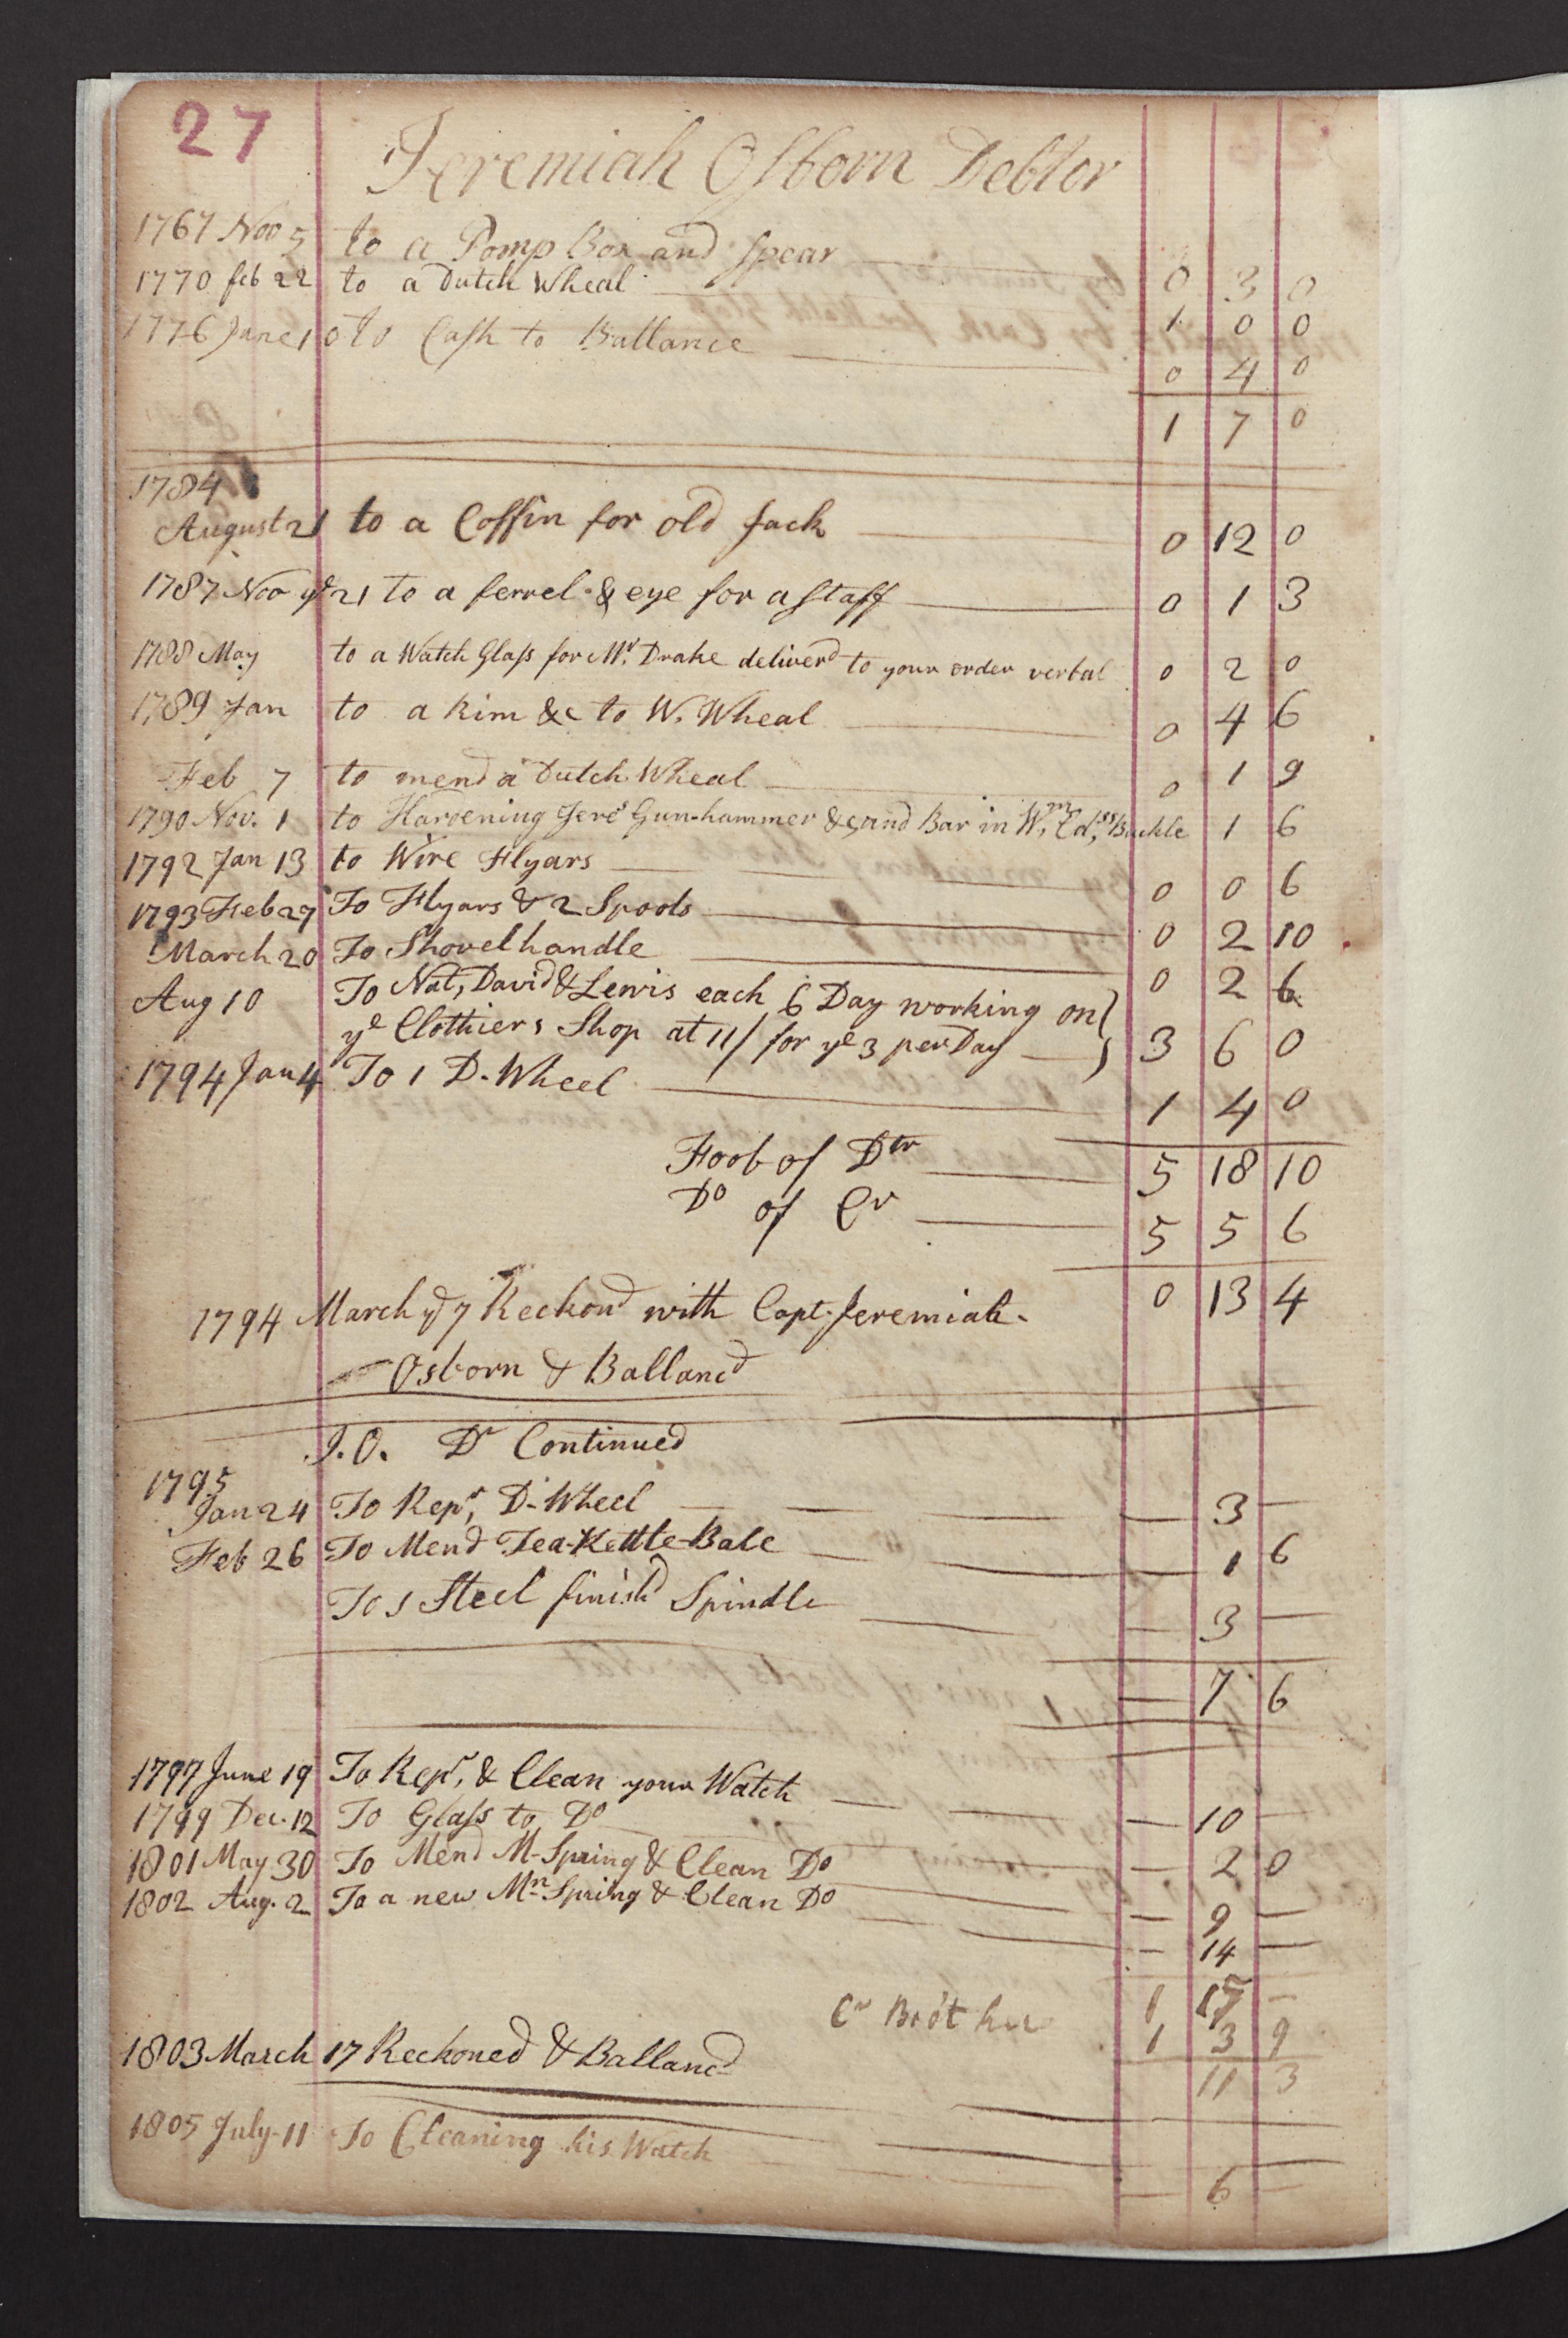 27
Jeremiah Osborn Debtor
1767 Nov 5 to a Pomp Box and Spear 0 3 0
1770 feb 22 to a Dutch Wheal 1 0 0
1776 June 10 to Cash to Ballance 0 4 0
1 7 0
1784
August 21 to a Coffin for old Jack 0 12 0
1787 Nov ye 21 to a ferrel & eye for a Staff 0 1 3
1788 May to a Watch Glass for Mr. Drake deliverd to your order verbal 0 2 0
1789 Jan to a Rim &c to W. Wheal 0 4 6
Feb 7 to mend a Dutch Wheal 0 1 9
1790 Nov. 1 to Hardening Jere's Gun-hammer &c and Bar in Wm. Ed.ds Buckle 1 6
1792 Jan 13 to Wire Flyars 0 0 6
1793 Feb 27 To Flyars & 2 Spools 0 2 10
March 20 To Shovel handle 0 2 6
Aug 10 To Nat, David & Lewis each 6 Day working on
ye Clothiers Shop at 11/ for ye 3 per Day 3 6 0
1794 Jan 4 To 1 D-Wheel 1 4 0
Foot of Dtr 5 18 10
Do of Cr 5 5 6
0 13 4
1794 March ye 7 Reckond with Capt. Jeremiah
Osborn & Balland
J.O. Dr Continued
1795
Jan 24 To Repr. D-Wheel — 3 —
Feb 26 To Mend Tea-Kettle-Bale — 1 6
To 1 Steel finishd Spindle — 3 —
— 7 6
1797 June 19 To Repr. & Clean your Watch — 10 —
1799 Dec. 12 To Glass to Do — 2 0
1801 May 30 To Mend M-Spring & Clean Do — 9 —
1802 Aug. 2 To a new Mn-Spring & Clean Do — 14 —
1 15 —
Cr Brot 1 3 9
11 3
1803 March 17 Reckoned & Balland
1805 July 11 To Cleaning his Watch — 6 —